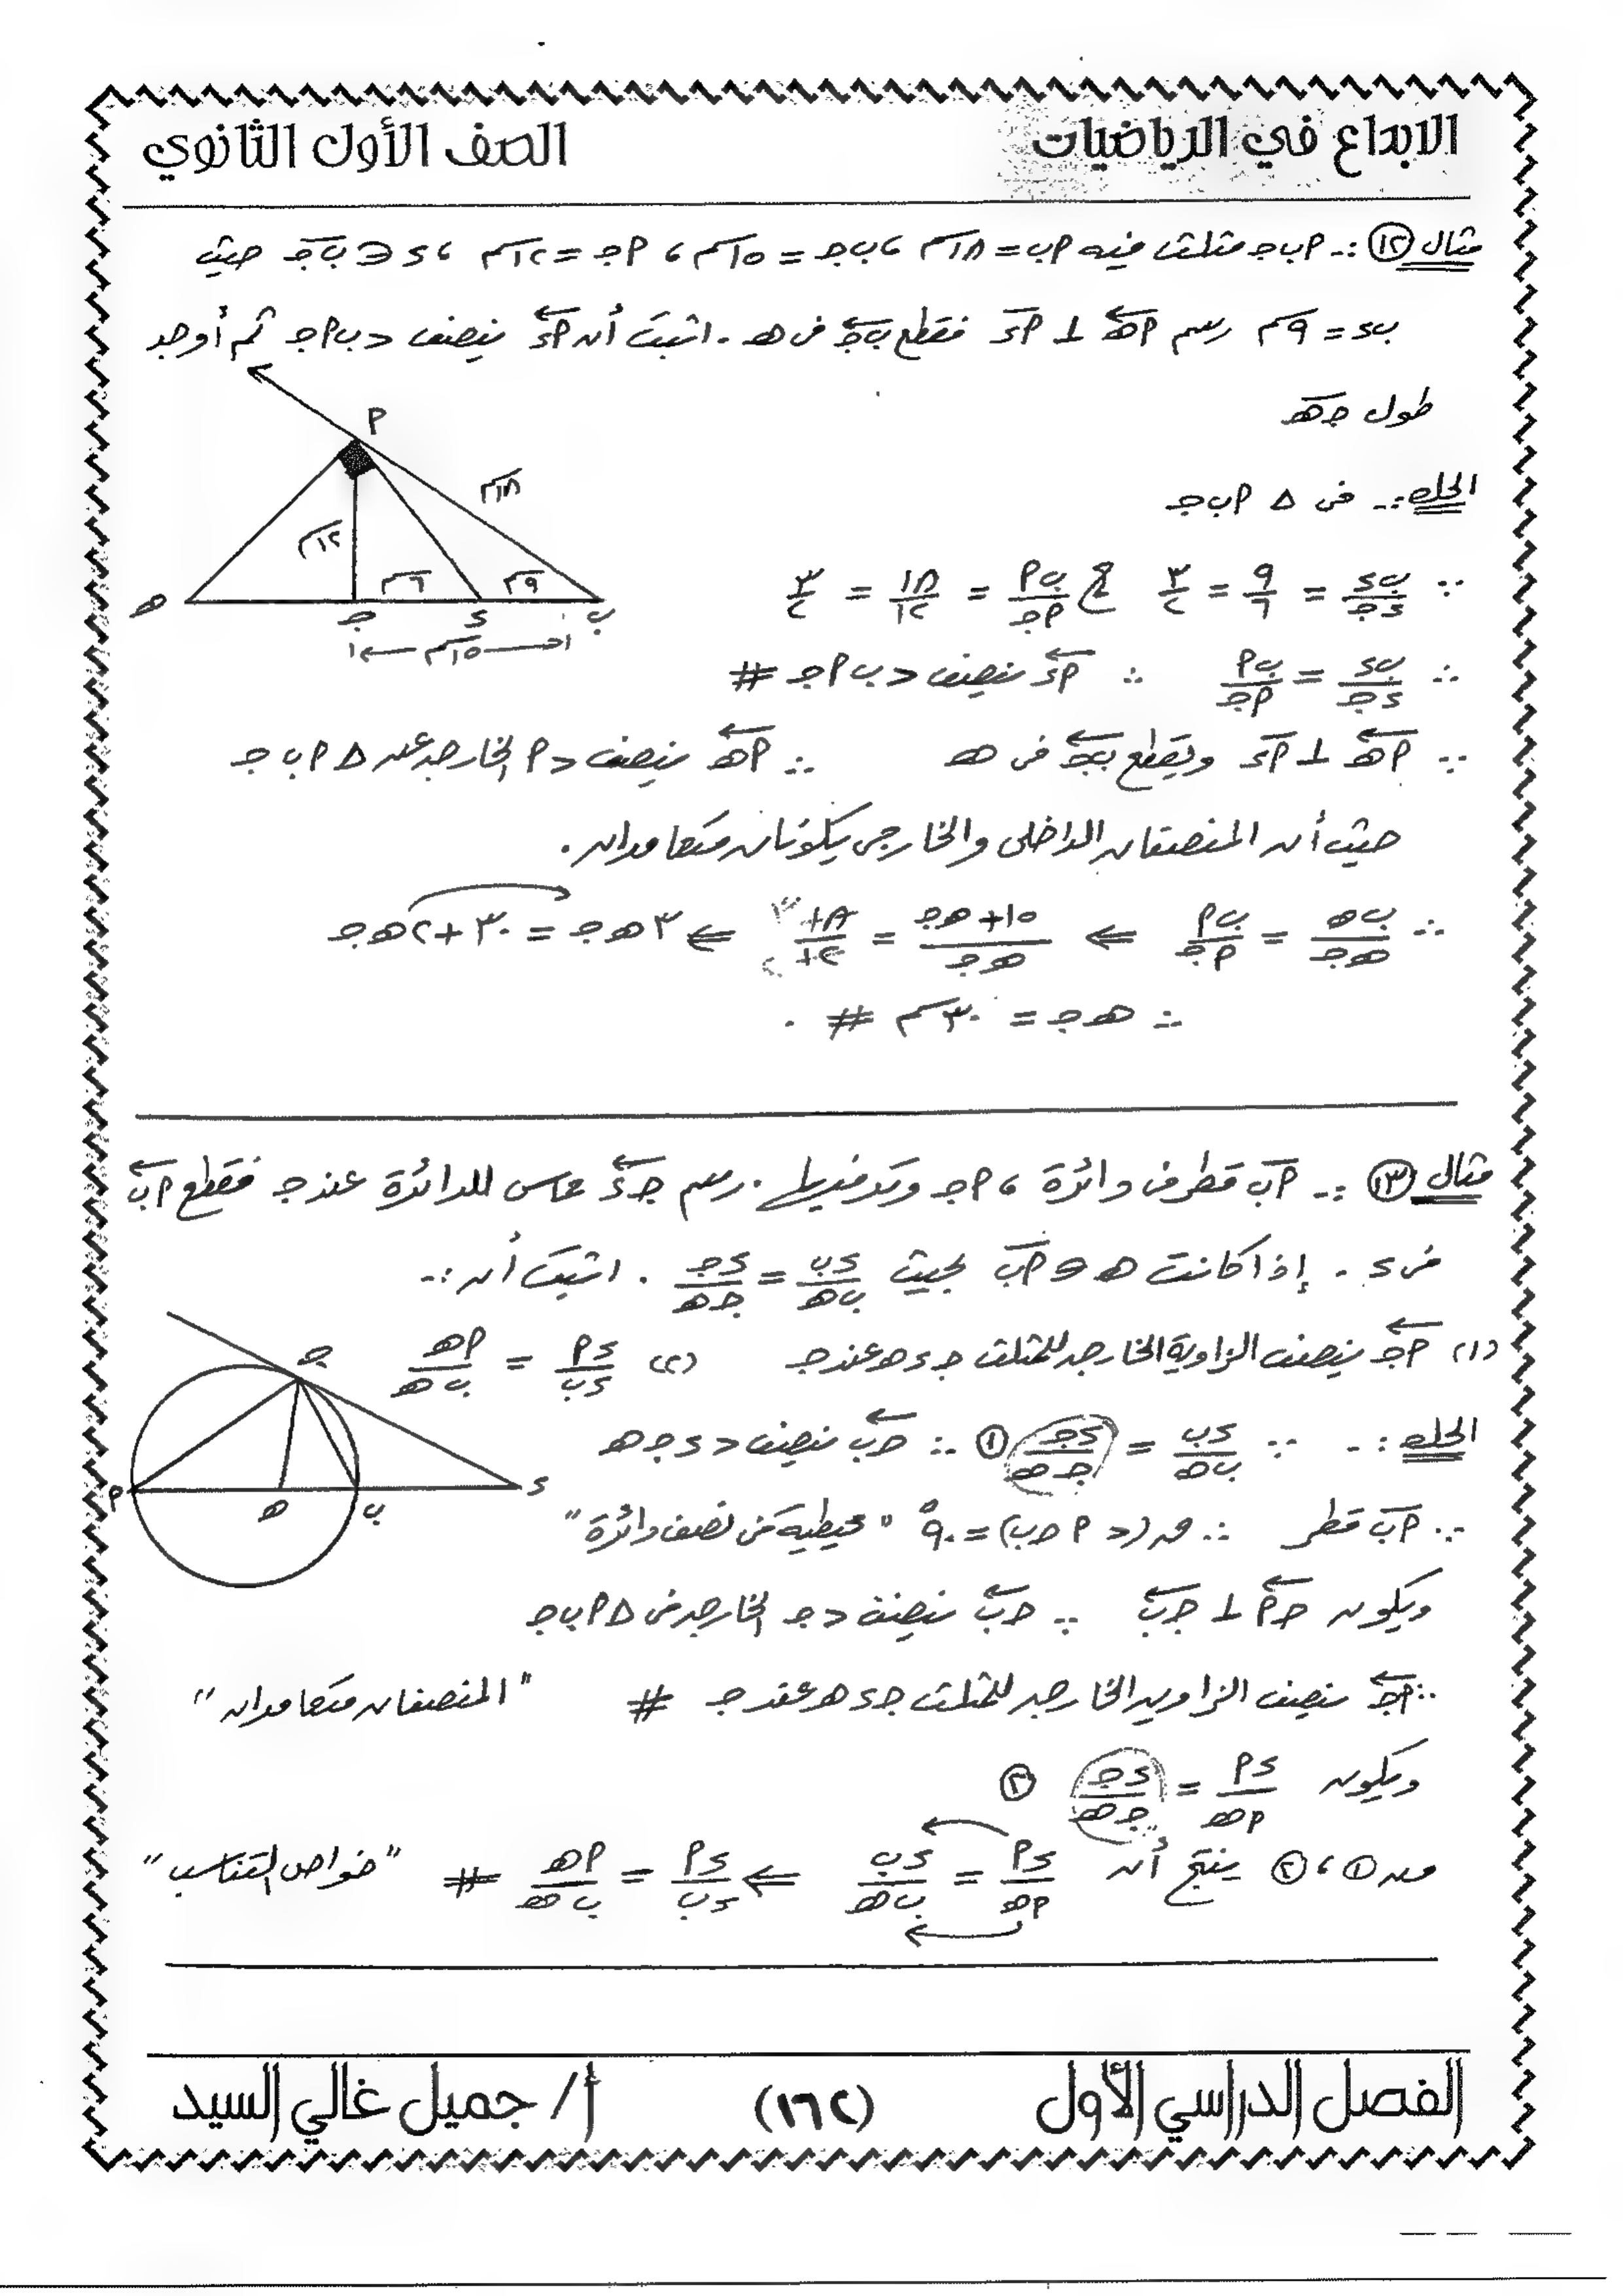 الابداع في الرياضيات
الصف الأول الثانوي
مثال (١٢) :- أ ب جـ مثلث فيه أ ب = ١٨سم ، ب جـ = ١٥سم ، أ جـ = ١٢سم ، د ∈ ب جـ حيث
ب د = ٩سم رسم أ هـ ⊥ أ د فقطع ب جـ فى هـ . اثبت أن أ د ينصف > ب أ جـ ثم أوجد
طول جـ هـ
الحل :- فى Δ أ ب جـ
∵ ب د / د جـ = ٩/٦ = ٣/٢ ، ب أ / أ جـ = ١٨/١٢ = ٣/٢
∴ ب د / د جـ = ب أ / أ جـ ∴ أ د ينصف > ب أ جـ #
∵ أ هـ ⊥ أ د ويقطع ب جـ فى هـ ∴ أ هـ ينصف > أ الخارجه عن Δ أ ب جـ
حيث أن المنصفان الداخلى والخارجى يكونان متعامدان .
∴ ب هـ / هـ جـ = ب أ / أ جـ ⇐ ١٥ + هـ جـ / هـ جـ = ١٨/١٢ ٣ ٢ ⇐ ٣ هـ جـ = ٣٠ + ٢ هـ جـ
∴ هـ جـ = ٣٠سم #
أ
١٨سم
١٢سم
٦سم
٩سم
هـ جـ د ب
١٥سم
مثال (١٣) :- أ ب قطر فى دائرة ، أ جـ وتر فيها . رسم جـ د مماس للدائرة عند جـ فقطع أ ب
فى د . إذا كانت هـ ∈ أ ب بحيث د ب / ب هـ = د جـ / جـ هـ . اثبت أن :-
(١) أ جـ ينصف الزاوية الخارجه للمثلث جـ د هـ عند جـ (٢) د أ / د ب = أ هـ / ب هـ
الحل :- ∵ د ب / ب هـ = د جـ / جـ هـ ① ∴ جـ ب ينصف > د جـ هـ
∵ أ ب قطر ∴ ق(> أ جـ ب) = ٩٠° "محيطيه فى نصف دائرة"
ويكون جـ أ ⊥ جـ ب ∵ جـ ب ينصف > جـ الخارجه فى Δ أ ب جـ
∴ أ جـ ينصف الزاويه الخارجه للمثلث جـ د هـ عند جـ # "المنصفان متعامدان"
ويكون د أ / أ هـ = د جـ / جـ هـ ②
من ① ، ② ينتج أن د أ / أ هـ = د ب / ب هـ ⇐ د أ / د ب = أ هـ / ب هـ # "خواص التناسب"
جـ
أ هـ ب د
الفصل الدراسي الأول
(١٦٢)
أ / جميل غالي السيد